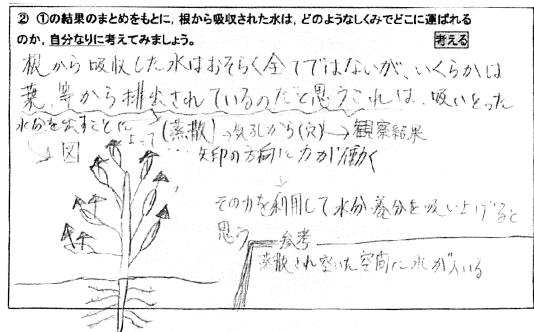 ② ①の結果のまとめをもとに，根から吸収された水は，どのようなしくみでどこに運ばれる
のか，自分なりに考えてみましょう。
考える
根から吸収した水はおそらく全てではないが、いくらかは
葉、等から排出されているのだと思うこれは、吸いとった
水分を出すことによって(蒸散)→気孔から(穴)→観察結果
→図 … 矢印の方向に力が働く
その力を利用して水分、養分を吸い上げると
思う
参考
蒸散され空いた空間に水が入いる